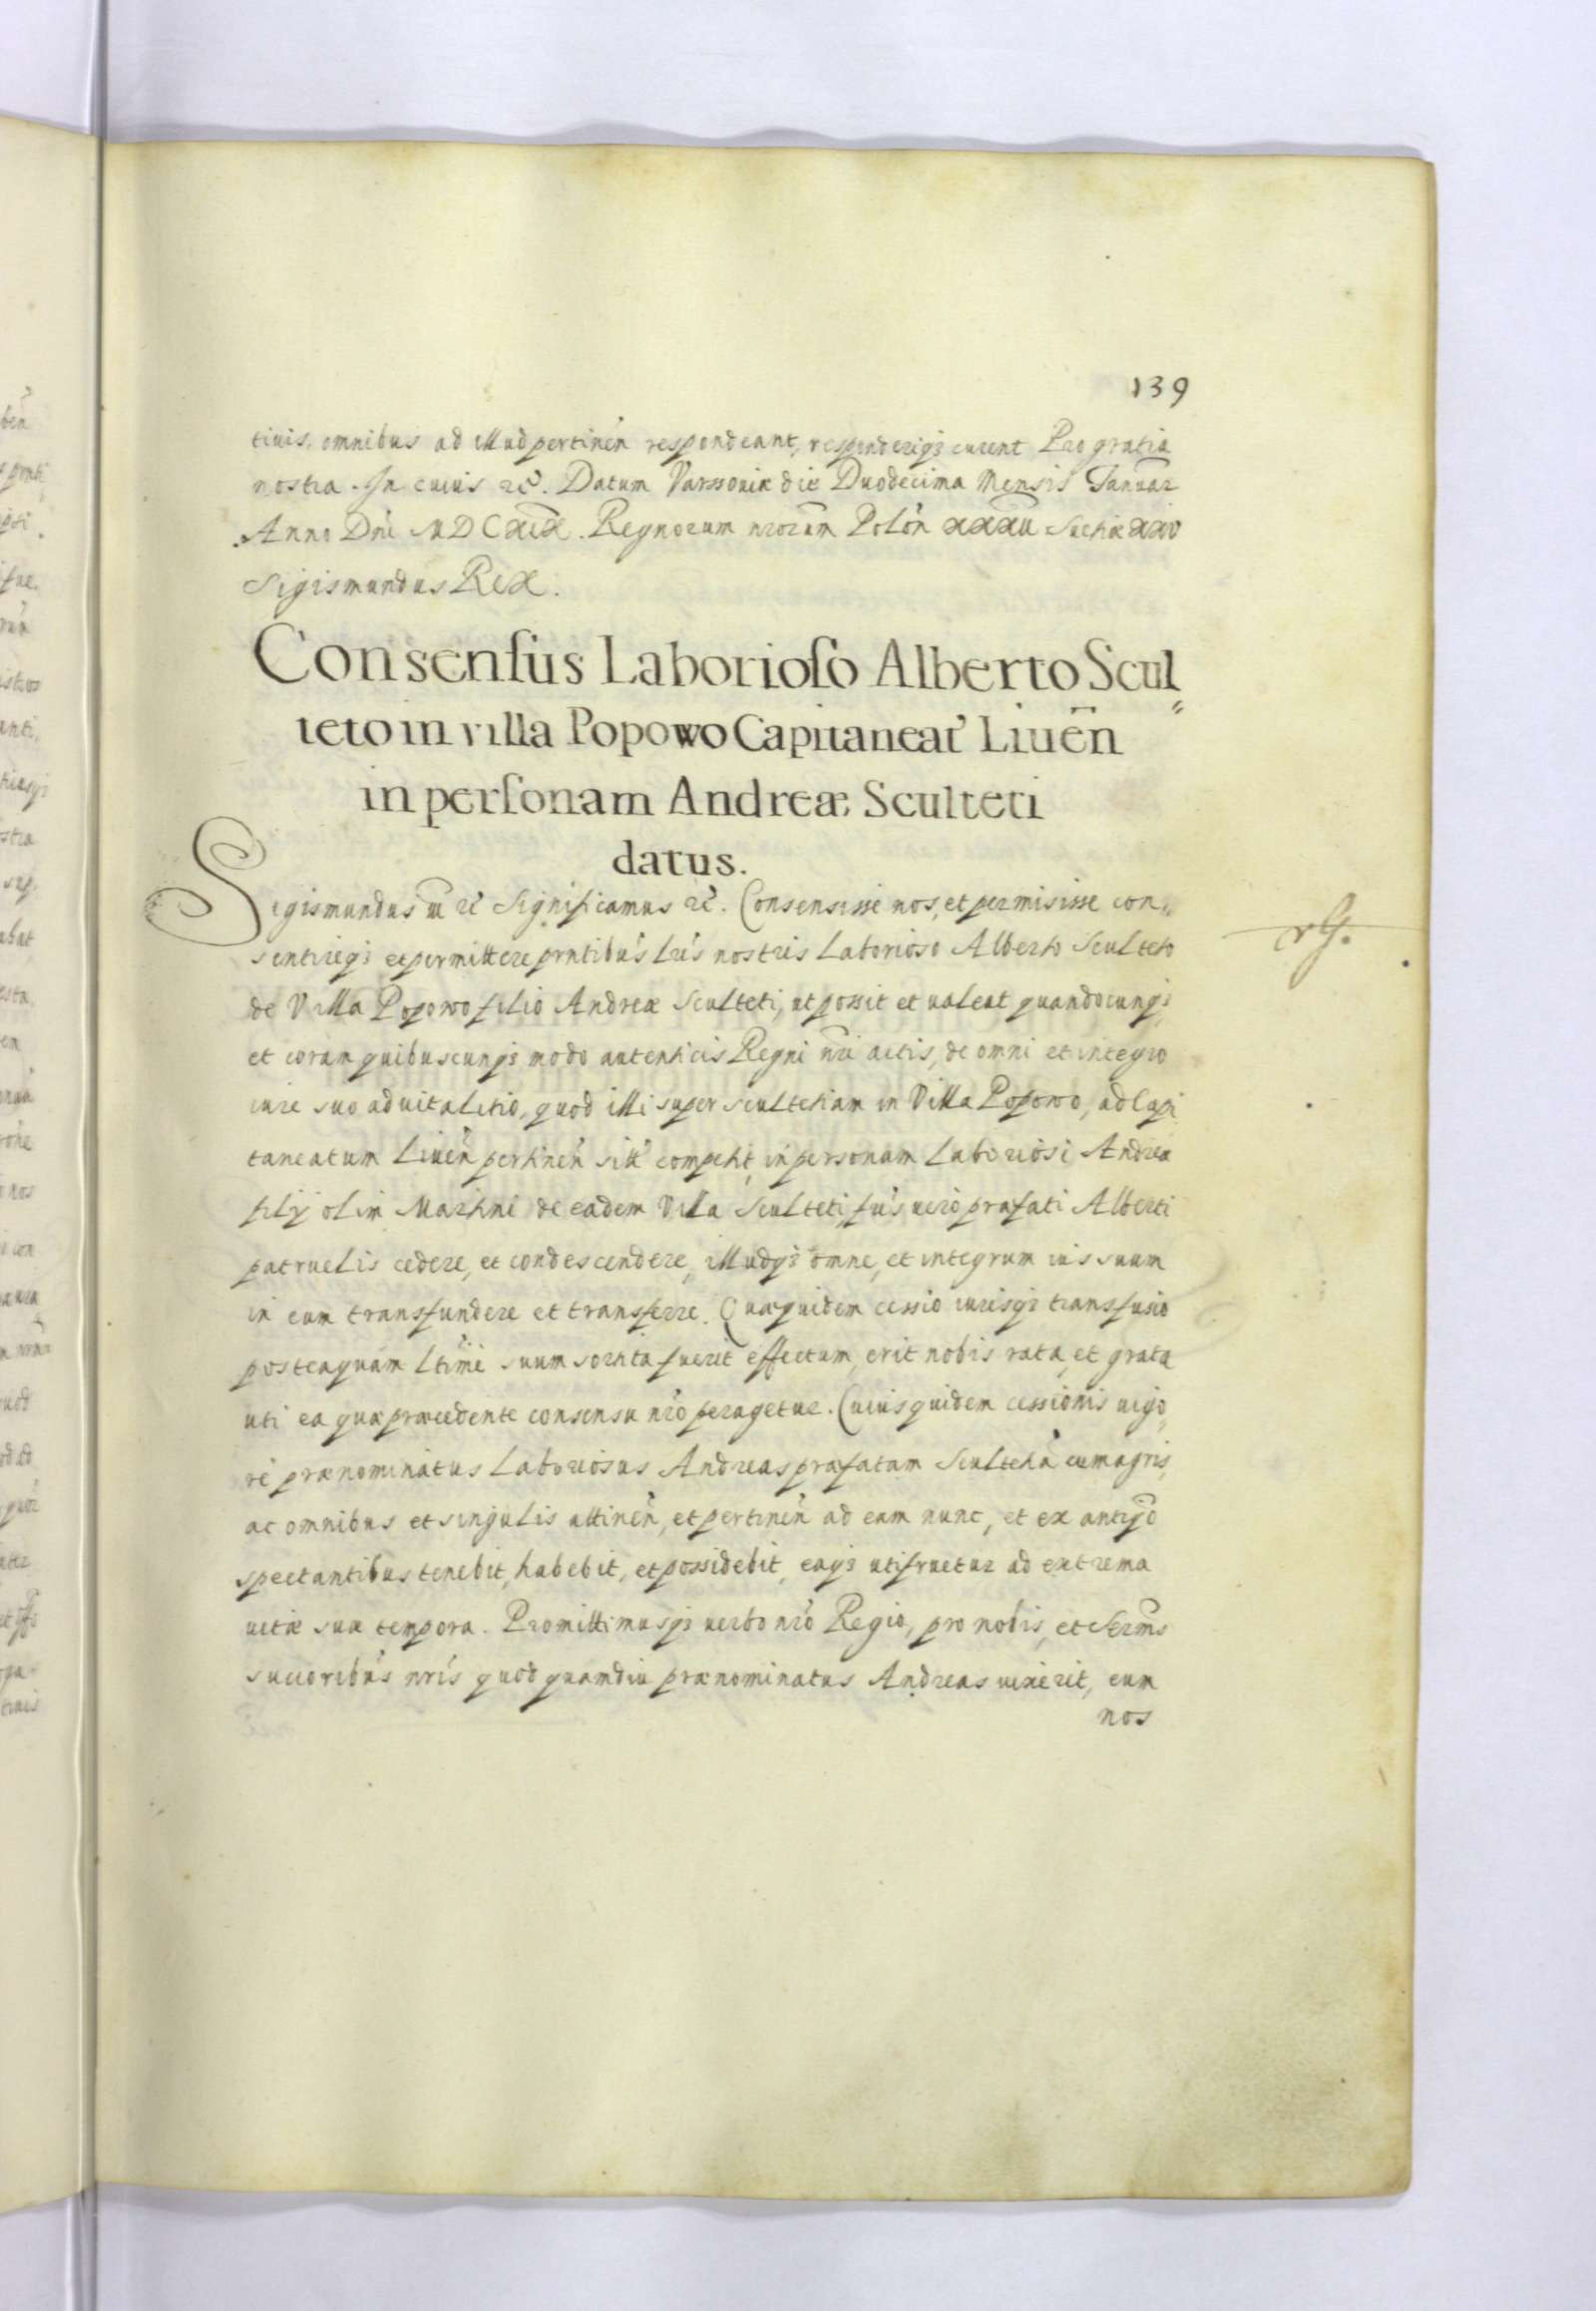 139
tiuis, omnibus ad illud pertinen̄ respondeant, responderiq3 curent Pro gratia
nostra. In cuius rc̄. Datum Varssouiæ die Duodecima Mensis Januar
Anno Dn̄i MDCXIX. Regnorum nrorum Polon̄ XXXII Suetiæ XXV
Sigismundus Rex.
Consensus Laborioso Alberto Scul⸗
teto in villa Popowo Capitaneat' Liuen̄
in personam Andreæ Sculteti
datus.
Sigismundus III rc̄ Significamus rc̄. Consensisse nos, et permisisse con⸗
sentireq3 et permittere prntibus Lris nostris Laborioso Alberto Sculteto
de Villa Popowo filio Andreæ Sculteti, ut possit et ualeat quandocunq3
et coram quibuscunq3 modo autenticis Regni nri actis, de omni et integro
iure suo aduitalitio, quod illi super scultetiam in Villa Popowo, ad Capi
taneatum Liuen̄ pertinen̄ sitt competit, in personam Laboriosi Andreæ
filij olim Martini de eadem Villa Sculteti, fris uero præfati Alberti
patruelis cedere, et condescendere, illudq3 omne, et integrum ius suum
in eum transfundere et transferre. Quæquidem cessio iurisq3 transfusio
posteaquam Ltime suum sortita fuerit effectum, erit nobis rata, et grata
uti ea quæ præcedente consensu nro peragetur. Cuius quidem cessionis uigo⸗
re prænominatus Laboriosus Andreas præfatam Scultetiā cum agris,
ac omnibus et singulis attinen̄, et pertinen̄ ad eam nunc, et ex antiqo
spectantibus tenebit, habebit, et possidebit, eaq3 utifruetur ad extrema
uitæ suæ tempora. Promittimusq3 uerbo nro Regio, pro nobis, et Sermis
succoribus nris quod quamdiu prænominatus Andreas uixerit, eum
nos